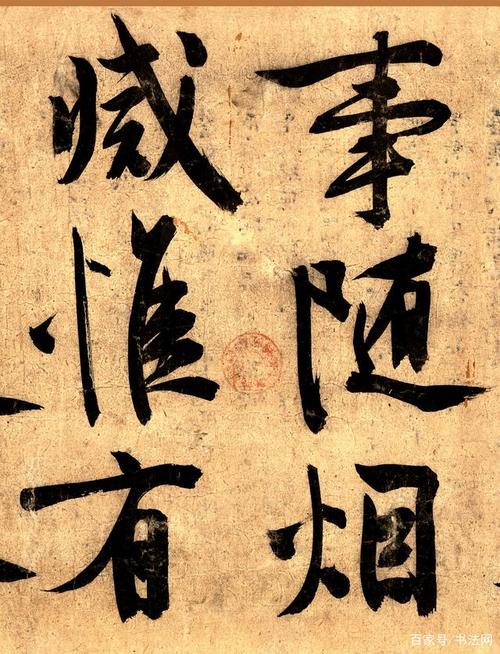 事随烟
滅惟有
百家号/书法网